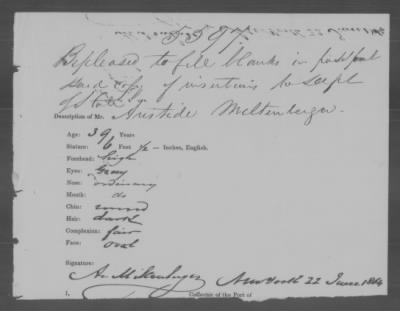 Be pleased to fill blanks in passport
send copy of insertions to Dept
of State
Description of Mr. Aristide Miltenberger.
Age: 39 Years
Stature: 6 Feet 1/2 — Inches, English.
Forehead: high
Eyes: Gray
Nose: ordinary
Mouth: do
Chin: round
Hair: dark
Complexion: fair
Face: oval
Signature:
A. Miltenberger New York 22 June 1864
I, Collector of the Port of